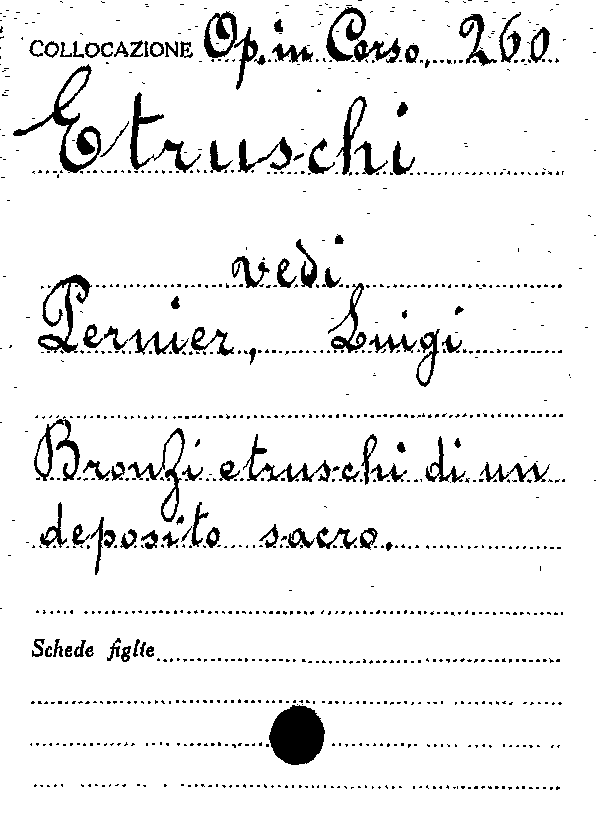 COLLOCAZIONE Op. in Corso, 260
Etruschi
vedi
Pernier, Luigi
Bronzi etruschi di un
deposito sacro.
Schede figlie